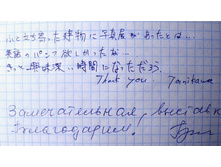 ふと立ち寄った建物に写真展があったとは…
英語のパンフ欲しかったな…
きっと興味深い時間になっただろう。
Thank you Tanikawa
Замечательная выставка
Благодарим.